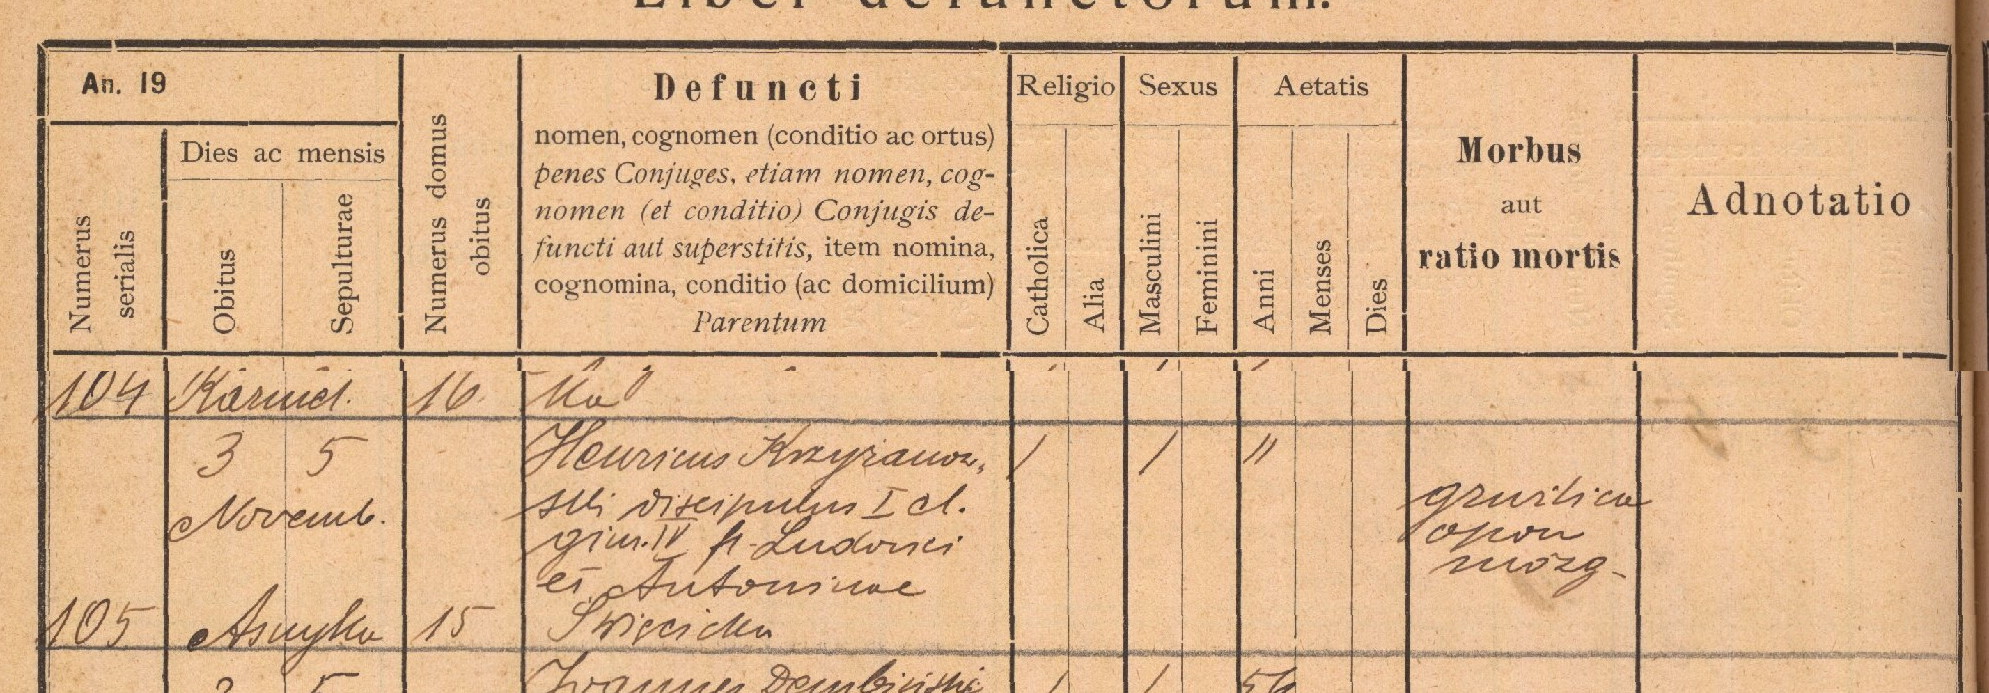 Liber defunctorum.
An. 19
Numerus serialis
Dies ac mensis
Obitus
Sepulturae
Numerus domus obitus
Defuncti
nomen, cognomen (conditio ac ortus)
penes Conjuges, etiam nomen, cog-
nomen (et conditio) Conjugis de-
functi aut superstitis, item nomina,
cognomina, conditio (ac domicilium)
Parentum
Religio
Catholica
Alia
Sexus
Masculini
Feminini
Aetatis
Anni
Menses
Dies
Morbus
aut
ratio mortis
Adnotatio
104 16
3 5 Henricus Krzyżanow- 1 1 11
ski discipulus I cl. gruźlica
Novemb. gim. IV fi. Ludovici opon
et Antoninae mózg-
105 Asnyka 15 Święcicka
3 5 Joannes Dembiński 1 1 56